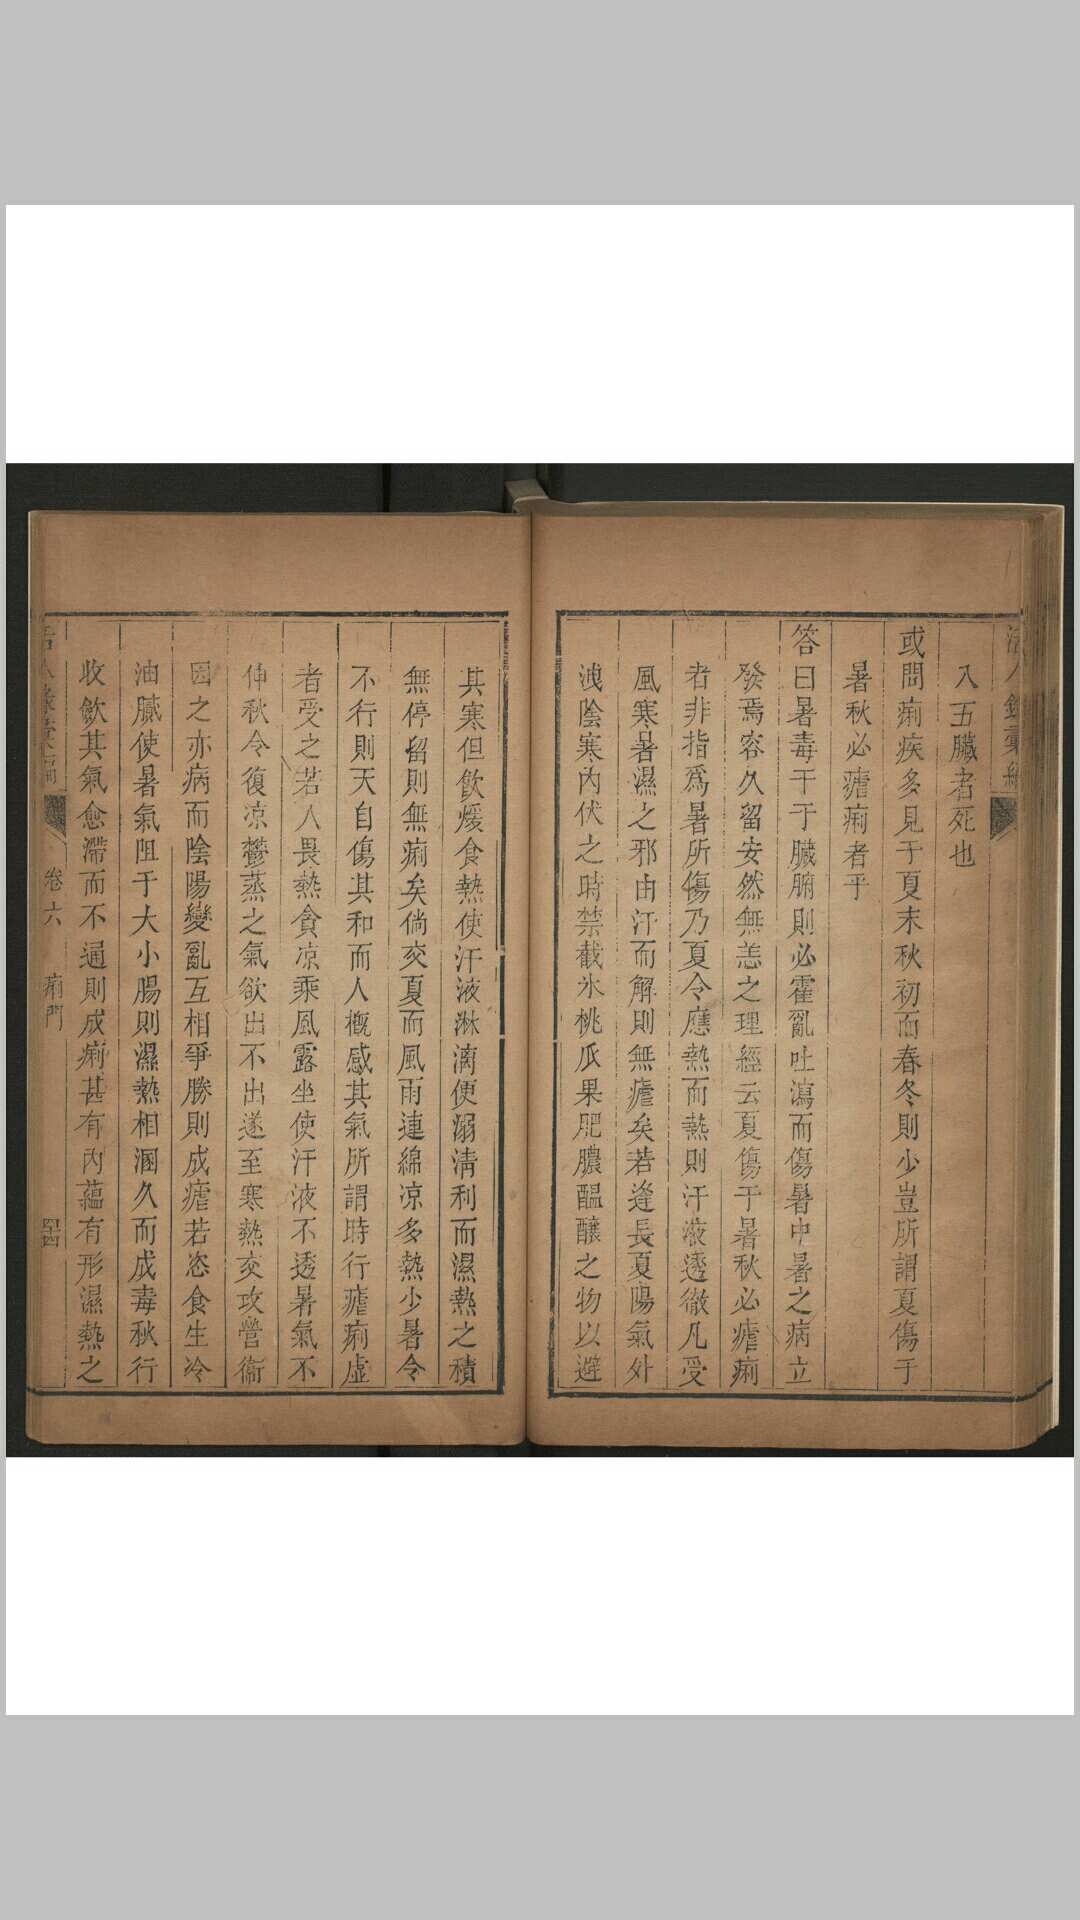 活人錄彙編
入五臟者死也
或問痢疾多見于夏末秋初而春冬則少豈所謂夏傷于
暑秋必瘧痢者乎
答曰暑毒干于臟腑則必霍亂吐瀉而傷暑中暑之病立
發焉容久留安然無恙之理經云夏傷于暑秋必瘧痢
者非指爲暑所傷乃夏令應熱而熱則汗液透徹凡受
風寒暑濕之邪由汗而解則無瘧矣若逢長夏陽氣外
洩陰寒內伏之時禁截氷桃瓜果肥膿醞釀之物以避
其寒但飲煖食熱使汗液淋漓便溺清利而濕熱之積
無停留則無痢矣倘交夏而風雨連綿凉多熱少暑令
不行則天自傷其和而人概感其氣所謂時行瘧痢虛
者受之若人畏熱貪凉乘風露坐使汗液不透暑氣不
伸秋令復凉鬱蒸之氣欲出不出遂至寒熱交攻營衞
因之亦病而陰陽變亂互相爭勝則成瘧若恣食生冷
油膩使暑氣阻于大小腸則濕熱相溷久而成毒秋行
收歛其氣愈滯而不通則成痢甚有內蘊有形濕熱之
卷六
痢門
四